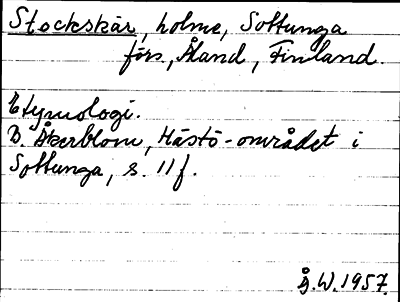 Stockskär, holme, Sottunga
förs., Åland, Finland.
Etymologi.
B. Åkerblom, Hästö-området i
Sottunga, s. 11 f.
Å.W. 1957.